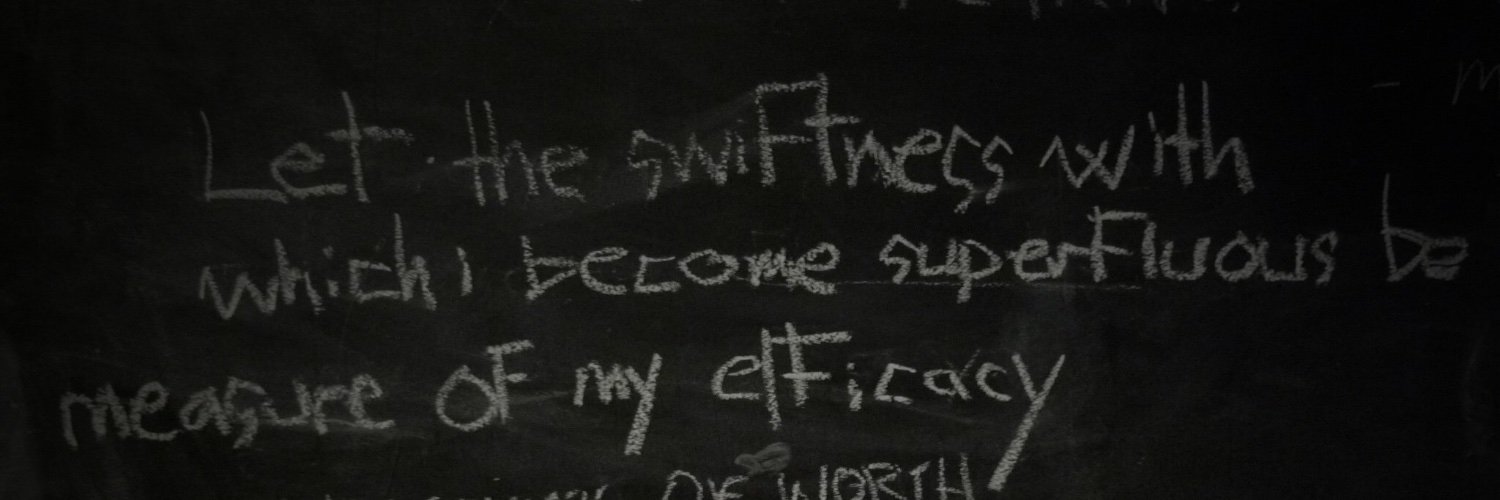 Let the swiftness with
which i become superfluous be
measure of my efficacy
OF WORTH